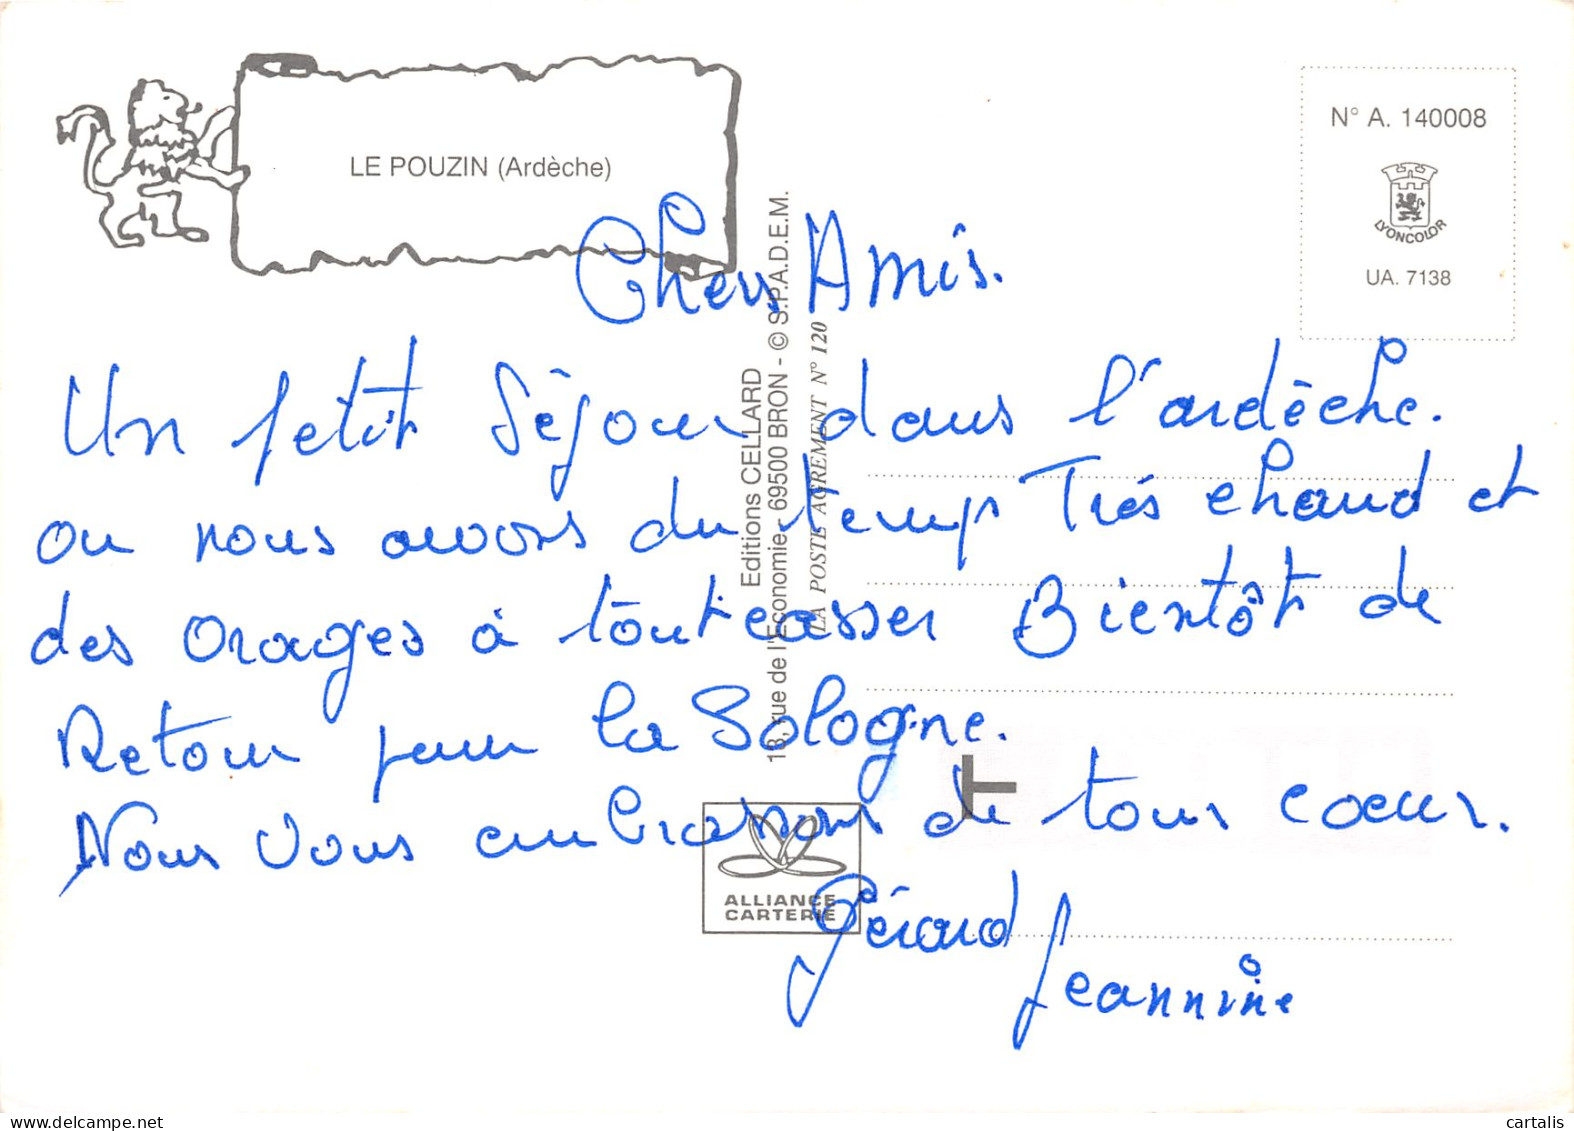 LE POUZIN (Ardèche)
N° A. 140008
LYONCOLOR
UA. 7138
Chers Amis.
Un petit séjour dans l'ardèche.
ou nous avons du temps Trés chaud et
des orages à tout casser Bientôt de
Retour pour la Sologne.
Nous vous embrassons de tous coeur.
Gérard
Jeannine
Editions CELLARD
18, rue de l'Economie - 69500 BRON - © S.P.A.D.E.M.
LA POSTE AGREMENT N° 120
T
ALLIANCE
CARTERIE
cartalis